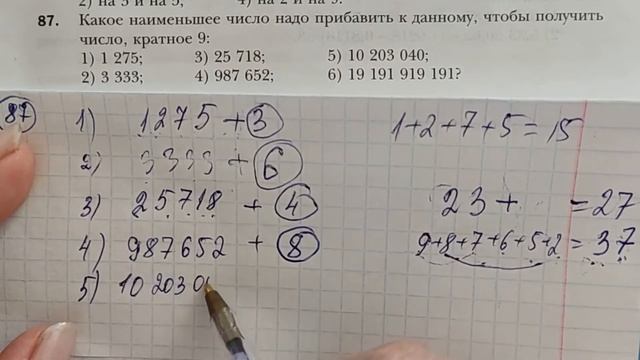 2) на 3 и на 5; 4) на 2 и на 9.
87. Какое наименьшее число надо прибавить к данному, чтобы получить
число, кратное 9:
1) 1 275; 3) 25 718; 5) 10 203 040;
2) 3 333; 4) 987 652; 6) 19 191 919 191?
87 1) 1275 + 3 1+2+7+5=15
2) 3333 + 6
3) 25718 + 4 23+ =27
4) 987652 + 8 9+8+7+6+5+2=37
5) 10 203 0